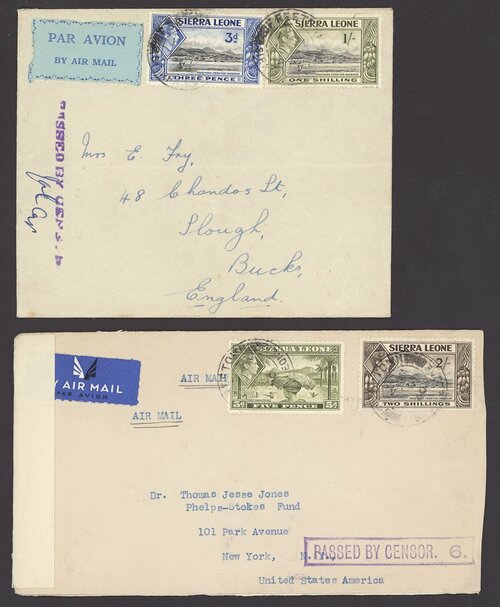 PAR AVION
BY AIR MAIL
SIERRA LEONE
3d
THREE PENCE
SIERRA LEONE
1/-
ONE SHILLING
PASSED BY CENSOR
Mrs E. Fry,
48 Chandos St,
Slough,
Bucks,
England.
BY AIR MAIL
PAR AVION
AIR MAIL
AIR MAIL
SIERRA LEONE
5d
FIVE PENCE
5d
SIERRA LEONE
2/-
TWO SHILLINGS
Dr. Thomas Jesse Jones
Phelps-Stokes Fund
101 Park Avenue
New York, N.Y.
United States America
PASSED BY CENSOR. 6.